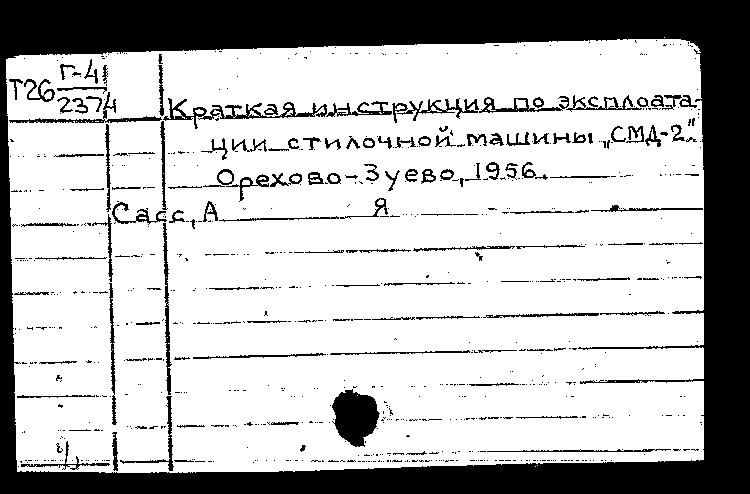 Т26 Г-4
2374
Краткая инструкция по эксплоата-
ции стилочной машины „СМД-2".
Орехово-Зуево, 1956.
Сасс, А Я